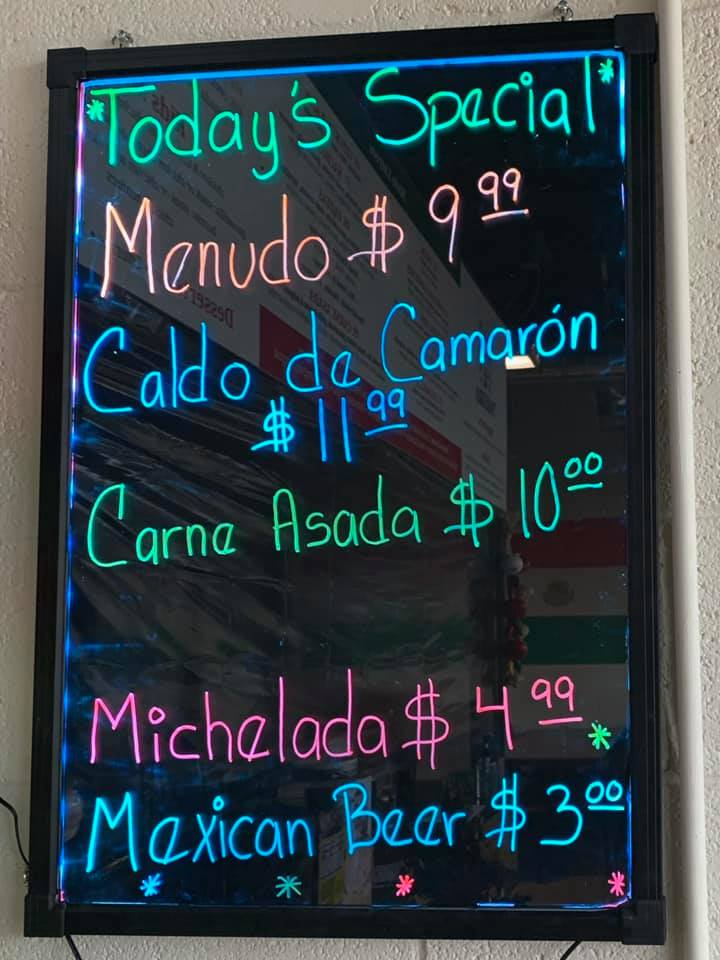 *Today's Special*
Menudo $ 9 99
Caldo de Camarón
$ 11 99
Carne Asada $ 10 00
Michelada $ 4 99
Mexican Beer $ 3 00
Desserts